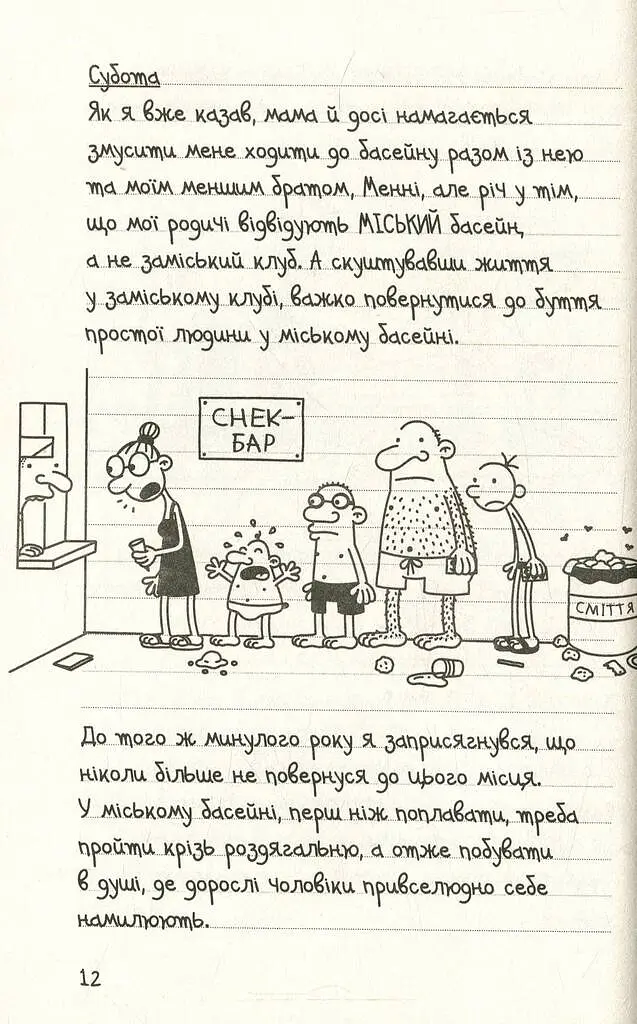 Субота
Як я вже казав, мама й досі намагається
змусити мене ходити до басейну разом із нею
та моїм меншим братом, Менні, але річ у тім,
що мої родичі відвідують МІСЬКИЙ басейн,
а не заміський клуб. А скуштувавши життя
у заміському клубі, важко повернутися до буття
простої людини у міському басейні.
СНЕК-
БАР
СМІТТЯ
До того ж минулого року я заприсягнувся, що
ніколи більше не повернуся до цього місця.
У міському басейні, перш ніж поплавати, треба
пройти крізь роздягальню, а отже побувати
в душі, де дорослі чоловіки привселюдно себе
намилюють.
12